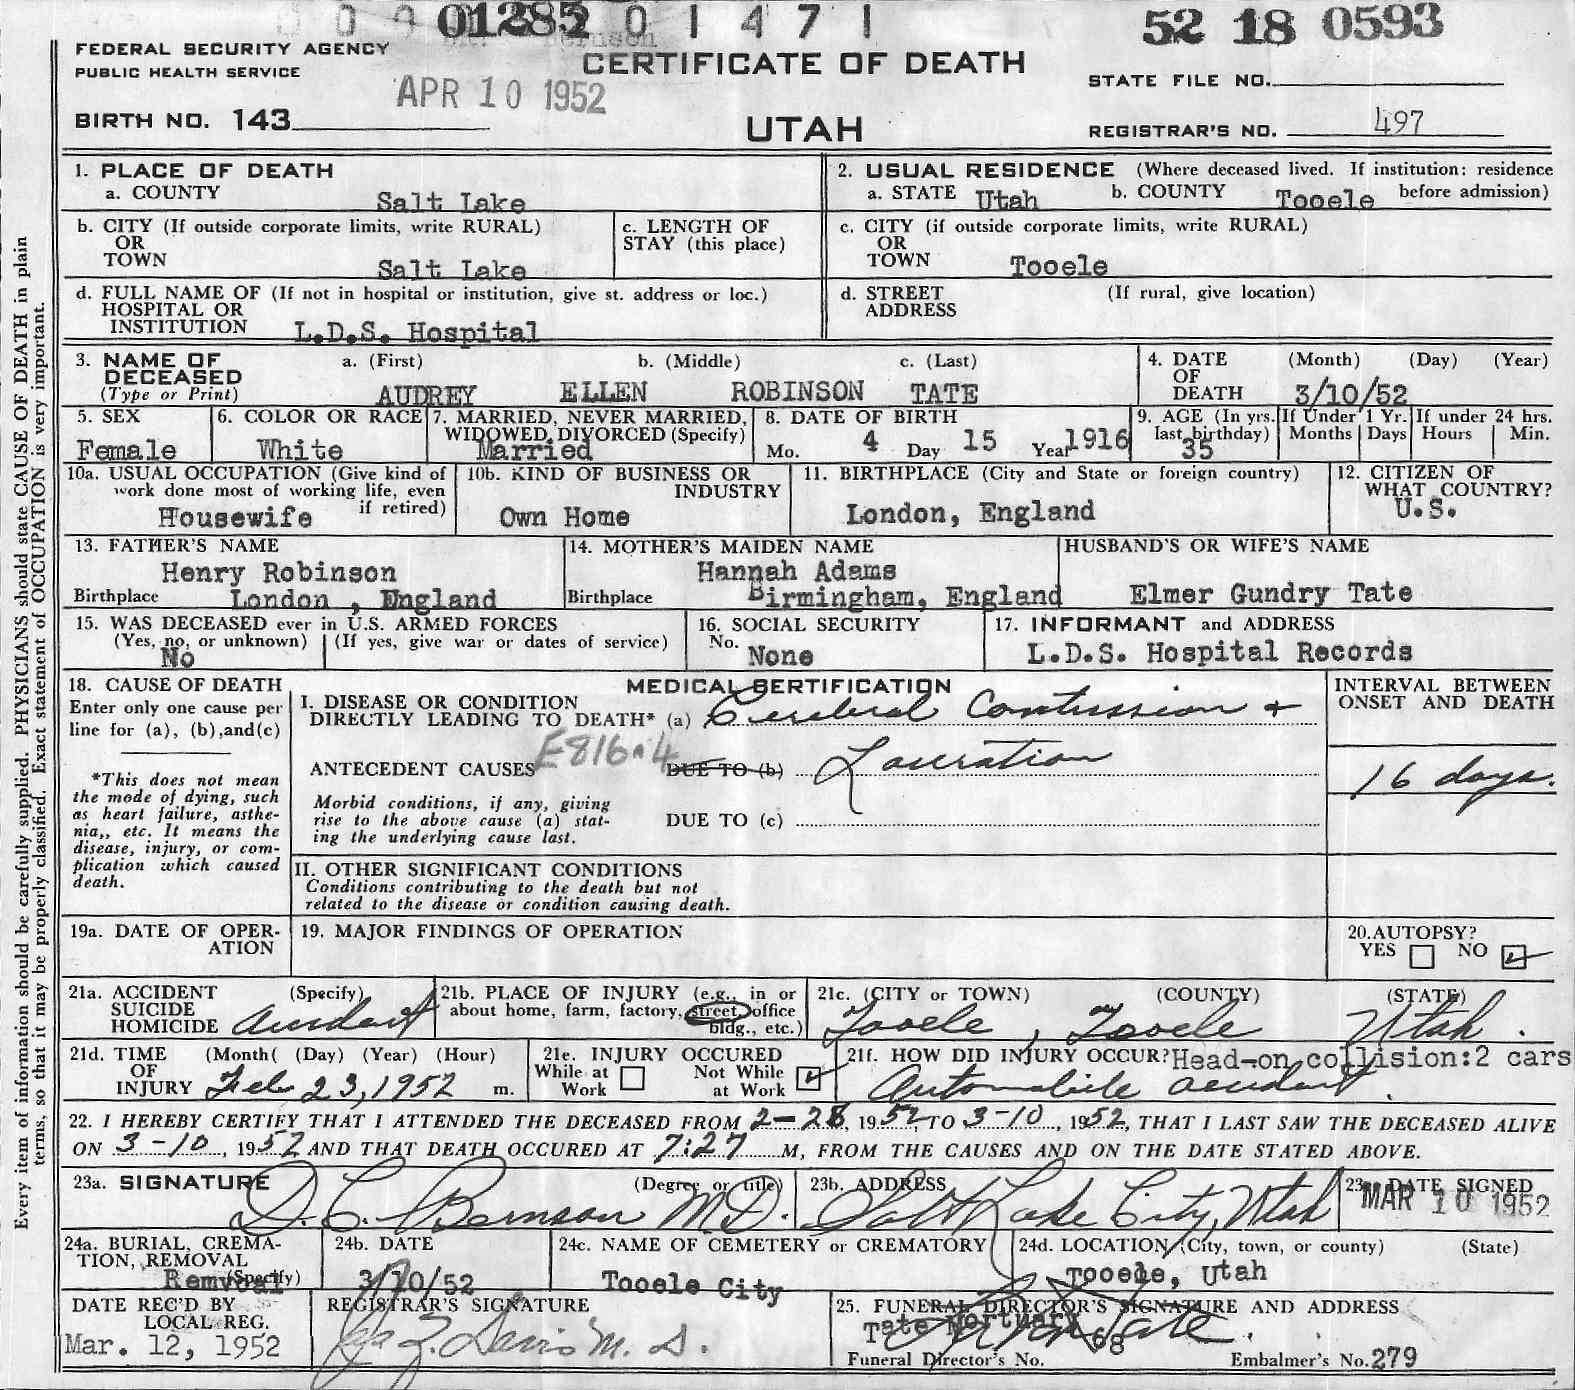 01285 0 1 4 7 1 52 18 0593
FEDERAL SECURITY AGENCY
PUBLIC HEALTH SERVICE
CERTIFICATE OF DEATH
STATE FILE NO.
APR 10 1952
BIRTH NO. 143
UTAH
REGISTRAR'S NO. 497
1. PLACE OF DEATH
a. COUNTY
Salt Lake
2. USUAL RESIDENCE (Where deceased lived. If institution: residence
a. STATE Utah b. COUNTY Tooele before admission)
b. CITY (If outside corporate limits, write RURAL)
OR
TOWN
Salt Lake
c. LENGTH OF
STAY (this place)
c. CITY (if outside corporate limits, write RURAL)
OR
TOWN Tooele
d. FULL NAME OF (If not in hospital or institution, give st. address or loc.)
HOSPITAL OR
INSTITUTION L.D.S. Hospital
d. STREET (If rural, give location)
ADDRESS
3. NAME OF a. (First) b. (Middle) c. (Last)
DECEASED
(Type or Print) AUDREY ELLEN ROBINSON TATE
4. DATE (Month) (Day) (Year)
OF
DEATH 3/10/52
5. SEX
Female
6. COLOR OR RACE
White
7. MARRIED, NEVER MARRIED,
WIDOWED, DIVORCED (Specify)
Married
8. DATE OF BIRTH
Mo. 4 Day 15 Year 1916
9. AGE (In yrs.
last birthday)
35
If Under 1 Yr.
Months Days
If under 24 hrs.
Hours Min.
10a. USUAL OCCUPATION (Give kind of
work done most of working life, even
if retired)
Housewife
10b. KIND OF BUSINESS OR
INDUSTRY
Own Home
11. BIRTHPLACE (City and State or foreign country)
London, England
12. CITIZEN OF
WHAT COUNTRY?
U.S.
13. FATHER'S NAME
Henry Robinson
Birthplace London , England
14. MOTHER'S MAIDEN NAME
Hannah Adams
Birthplace Birmingham, England
HUSBAND'S OR WIFE'S NAME
Elmer Gundry Tate
15. WAS DECEASED ever in U.S. ARMED FORCES
(Yes, no, or unknown) (If yes, give war or dates of service)
No
16. SOCIAL SECURITY
No. None
17. INFORMANT and ADDRESS
L.D.S. Hospital Records
18. CAUSE OF DEATH
Enter only one cause per
line for (a), (b),and(c)
*This does not mean
the mode of dying, such
as heart failure, asthe-
nia,, etc. It means the
disease, injury, or com-
plication which caused
death.
MEDICAL BERTIFICATION
I. DISEASE OR CONDITION
DIRECTLY LEADING TO DEATH* (a) Cerebral Contussion +
E816.4
ANTECEDENT CAUSES DUE TO (b) Laceration
Morbid conditions, if any, giving
rise to the above cause (a) stat-
ing the underlying cause last.
DUE TO (c)
INTERVAL BETWEEN
ONSET AND DEATH
16 days.
II. OTHER SIGNIFICANT CONDITIONS
Conditions contributing to the death but not
related to the disease or condition causing death.
19a. DATE OF OPER-
ATION
19. MAJOR FINDINGS OF OPERATION
20. AUTOPSY?
YES NO
21a. ACCIDENT (Specify)
SUICIDE
HOMICIDE Accident
21b. PLACE OF INJURY (e.g., in or
about home, farm, factory, street, office
bldg., etc.)
21c. (CITY or TOWN) (COUNTY) (STATE)
Tooele , Tooele Utah .
21d. TIME (Month( (Day) (Year) (Hour)
OF
INJURY Feb 23, 1952 m.
21e. INJURY OCCURED
While at Not While
Work at Work
21f. HOW DID INJURY OCCUR? Head-on collision:2 cars
Automobile accident.
22. I HEREBY CERTIFY THAT I ATTENDED THE DECEASED FROM 2-28, 1952, TO 3-10, 1952, THAT I LAST SAW THE DECEASED ALIVE
ON 3-10, 1952 AND THAT DEATH OCCURED AT 7:27 M, FROM THE CAUSES AND ON THE DATE STATED ABOVE.
23a. SIGNATURE (Degree or title)
D. C. Bernson M.D.
23b. ADDRESS
Salt Lake City, Utah
23c. DATE SIGNED
MAR 10 1952
24a. BURIAL, CREMA-
TION, REMOVAL
(Specify)
Remvoal
24b. DATE
3/10/52
24c. NAME OF CEMETERY or CREMATORY
Tooele City
24d. LOCATION (City, town, or county) (State)
Tooele, Utah
DATE REC'D BY
LOCAL REG.
Mar. 12, 1952
REGISTRAR'S SIGNATURE
Davis M. D.
25. FUNERAL DIRECTOR'S SIGNATURE AND ADDRESS
Tate Mortuary
Tate.
Funeral Director's No. 68 Embalmer's No. 279
Every item of information should be carefully supplied. PHYSICIANS should state CAUSE OF DEATH in plain
terms, so that it may be properly classified. Exact statement of OCCUPATION is very important.